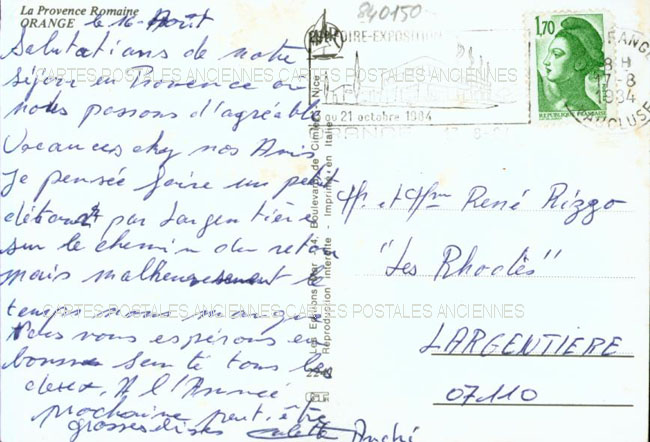 La Provence Romaine
ORANGE
le 16 Août
Salutations de notre
séjour en Provence ou
nous passons d'agréable
Vacances chez nos Amis
Je pensée faire un petit
détour par Largentière
sur le chemin du retour
mais malheureusement le
temps nous manque
vous espérons en
bonne santé tous les
deux. A l'Année
prochaine peut être
grosses bises
André
840150
FOIRE-EXPOSITION
au 21 octobre 1984
ORANGE
17-8
1984
VAUCLUSE
1,70
REPUBLIQUE FRANÇAISE
Mr et Mme René Rizzo
"Les Rhodes"
LARGENTIERE
07110
Boulevard de Cimiez - Nice
Reproduction interdite - Imprimé en Italie
CARTES POSTALES ANCIENNES CARTES POSTALES ANCIENNES
CARTES POSTALES ANCIENNES CARTES POSTALES ANCIENNES